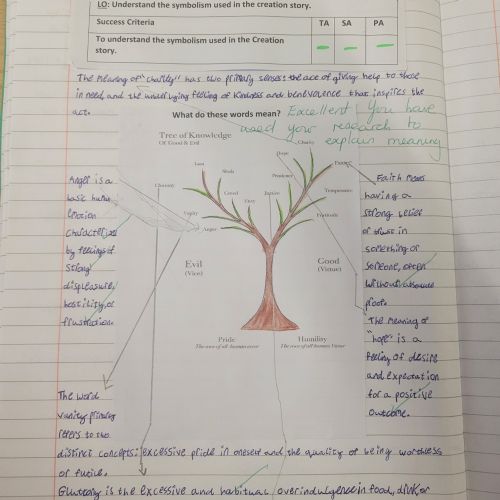 LO: Understand the symbolism used in the creation story.
Success Criteria TA SA PA
To understand the symbolism used in the Creation
story.
The meaning of "charity" has two primary senses: the act of giving help to those
in need, and the underlying feeling of kindness and benevolence that inspires the
act.
What do these words mean?
Excellent! You have
used your research to
explain meaning
Tree of Knowledge
Of Good & Evil
Charity
Lust
Hope
Sloth
Faith
Prudence
Gluttony
Greed
Envy
Justice
Temperance
Vanity
Fortitude
Anger
Evil
(Vice)
Good
(Virtue)
Pride
The root of all human error
Humility
The root of all human Virtue
Anger is a
basic human
emotion
characterized
by feelings of
strong
displeasure,
hostility, or
frustration.
Faith means
having a
strong belief
or trust in
something or
someone, often
without absolute
proof.
The meaning of
"hope" is a
feeling of desire
and expectation
for a positive
outcome.
The word
vanity primary
refers to two
distinct concepts: excessive pride in oneself and the quality of being worthless
or futile.
Gluttony is the excessive and habitual overindulgence in food, drink, or